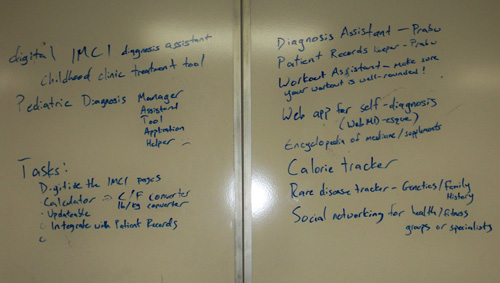 digital IMCI diagnosis assistant
Childhood clinic treatment tool
Pediatric Diagnosis Manager
Assistant
Tool
Application
Helper
Tasks:
Digitize the IMCI pages
Calculator → C/F converter
lb/kg converter
• Updateable
○ Integrate with Patient Records
○
Diagnosis Assistant – Prabu
Patient Records keeper - Prabu
Workout Assistant – make sure
your workout is well-rounded!
Web app for self-diagnosis
(WebMD-esque)
Encyclopedia of medicine/supplements
Calorie tracker
Rare disease tracker – Genetics/Family
History
Social networking for health/fitness
groups or specialists